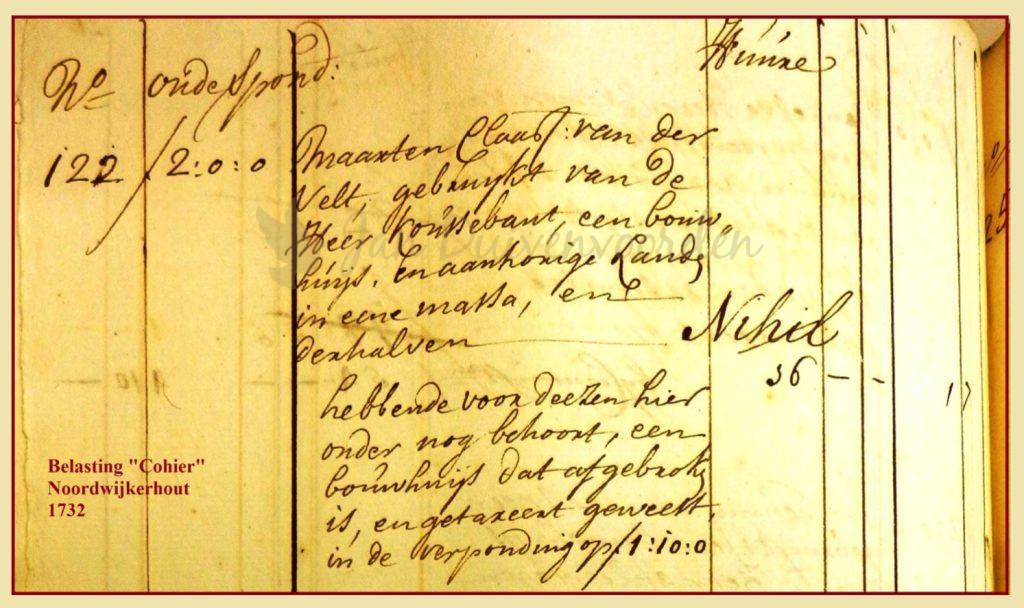 Huure
No oude Spond:
122 / 2:0:0 Maarten Claasz: van der
Velt, gebruijkt van de
Heer Coussebant, een bouw
huijs, en aanhorige Landen
in eene massa, en
derhalven Nihil
36 - -
17
hebbende voor deezen hier
onder nog behoort, een
bouwhuijs dat afgebroken
is, en getaxeert geweest,
in de verponding op / 1:10:0
Belasting "Cohier"
Noordwijkerhout
1732